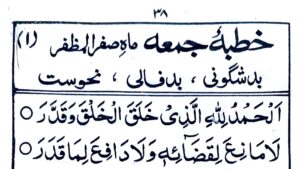 ۳۸
خطبۂ جمعہ ماہِ صفر المظفر (۱)
بدشگونی ، بدفالی ، نحوست
اَلْحَمْدُ لِلّٰهِ الَّذِیْ خَلَقَ الْخَلْقَ وَقَدَّرَ ○
لَا مَانِعَ لِقَضَائِهٖ وَلَا دَافِعَ لِمَا قَدَرَ ○